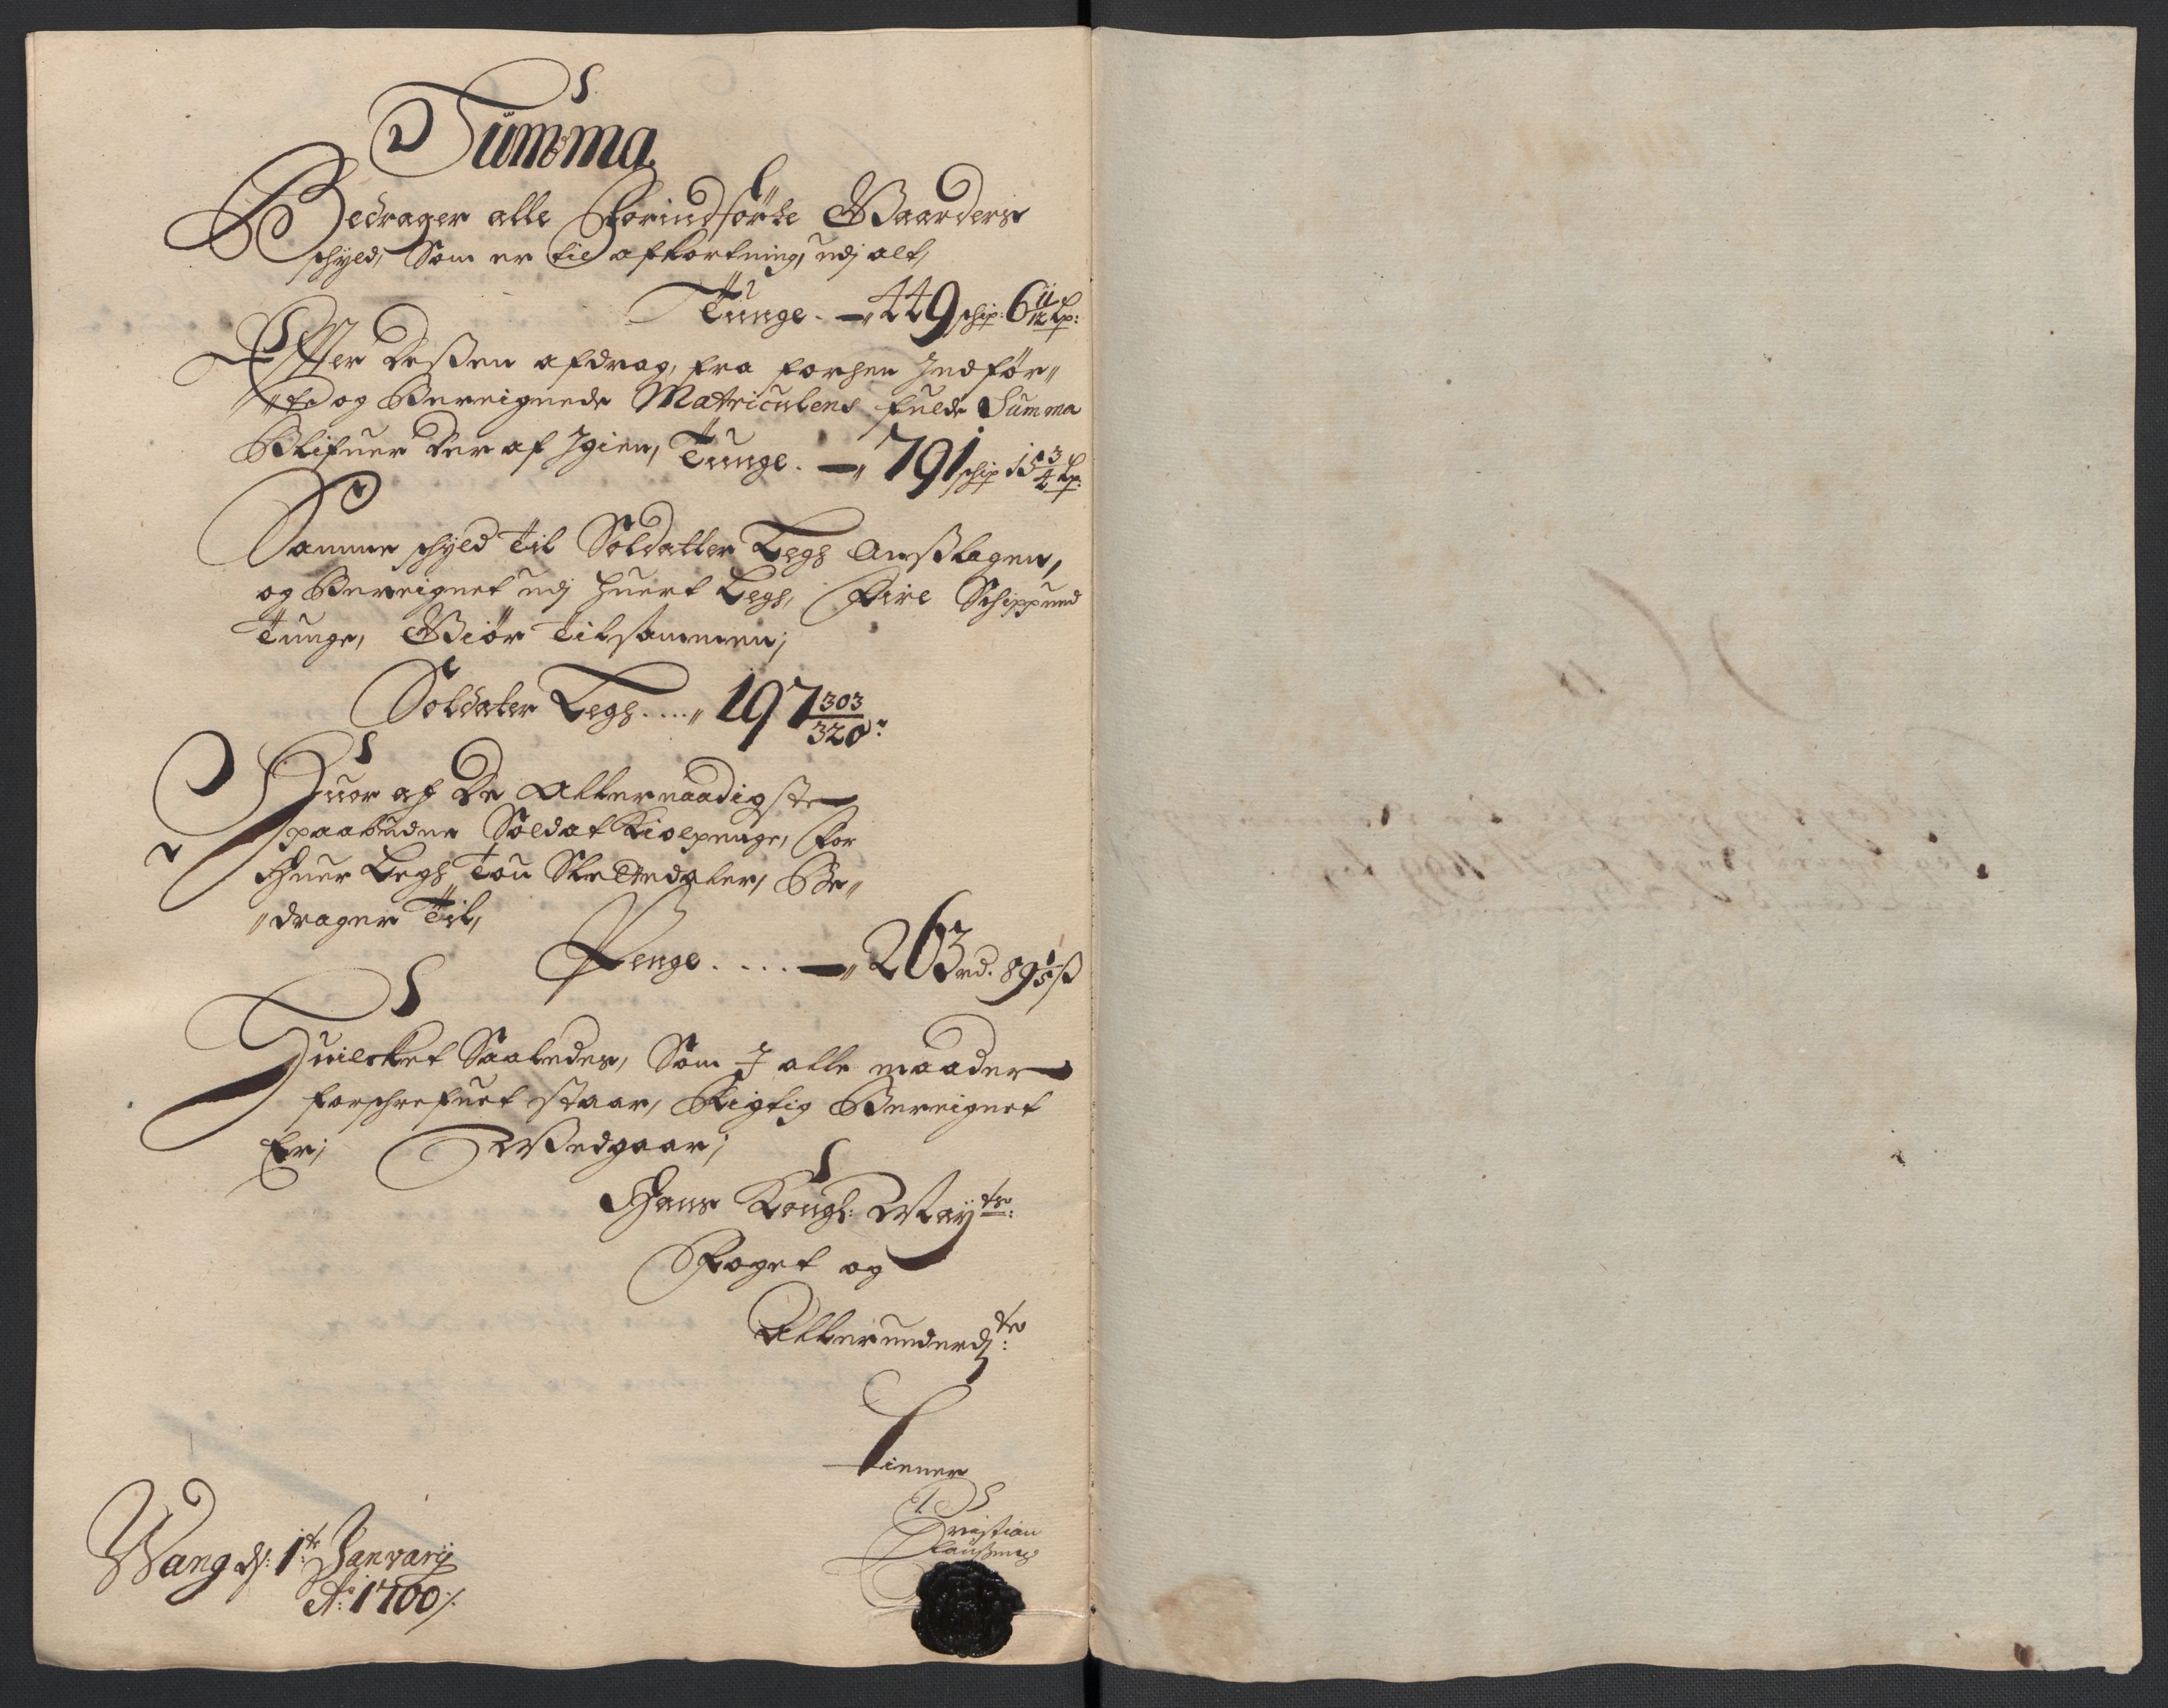 Summa
Bedrager alle Forindførte Gaarders
schyld, Som er til afkortning, udj alt,
Tunge. — 449 schp: 6 11/12 Lp:
Efter dessen afdrag, fra forhen Indfør„
„te og Bereignede Matriculens fulde Summa
Blifuer der af Igien, Tunge. — 791 schp 15 3/4 Lp:
Samme schyld til Soldatter Legh Anslagen,
og Bereignet udj huert Legh, Fire Schippund
Tunge, Giør tilsammen;
Soldater Legh....„ 197 303/320:
Huor af De Allernaadigste
paabudne Soldat Kiolpenge, for
Huer Legh Tou Slettedaler, Be„
„drager Til,
Penge. . . . —„ 263 rd. 89 1/5 ß
Huilcket Saaledes, Som I alle maader
forschrefuet staar, Rigtig Bereignet
Er; Vedgaar;
Hans Kongl: Mayts:
Foget og
Allerunderdte:
tiener
Christian
Claussen
Wang d: 1te January
Ao: 1700 /.